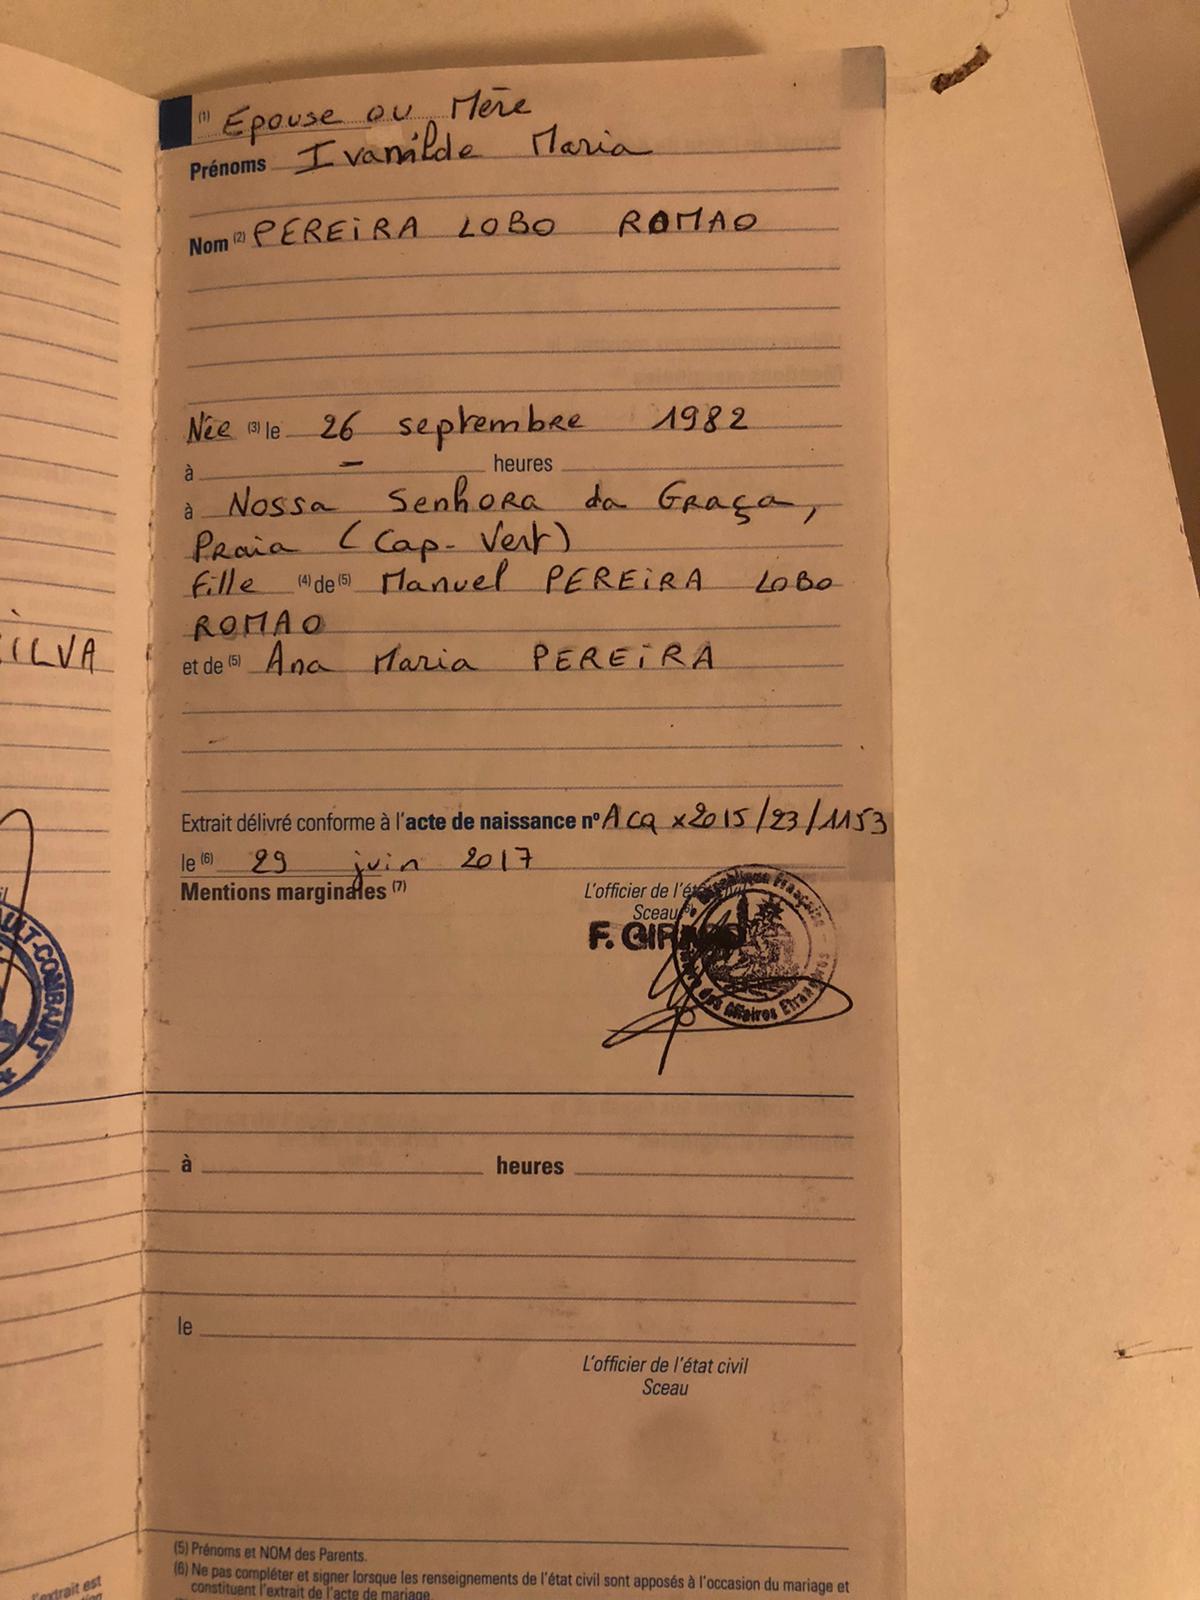 (1) Epouse ou Mère
Prénoms Ivanilde Maria
Nom (2) PEREIRA LOBO ROMAO
Née (3) le 26 septembre 1982
à - heures
à Nossa Senhora da Graça,
Praia (Cap-Vert)
Fille (4) de (5) Manuel PEREIRA LOBO
ROMAO
et de (5) Ana Maria PEREIRA
SILVA
Extrait délivré conforme à l'acte de naissance n° Acq x2015/23/1153
le (6) 29 juin 2017
Mentions marginales (7)
L'officier de l'état civil
Sceau (6)
F. GIRARD
République Française
des Affaires Etrangères
AULT-COMBAULT
à heures
le
L'officier de l'état civil
Sceau
(5) Prénoms et NOM des Parents.
(6) Ne pas compléter et signer lorsque les renseignements de l'état civil sont apposés à l'occasion du mariage et
constituent l'extrait de l'acte de mariage.
l'extrait est